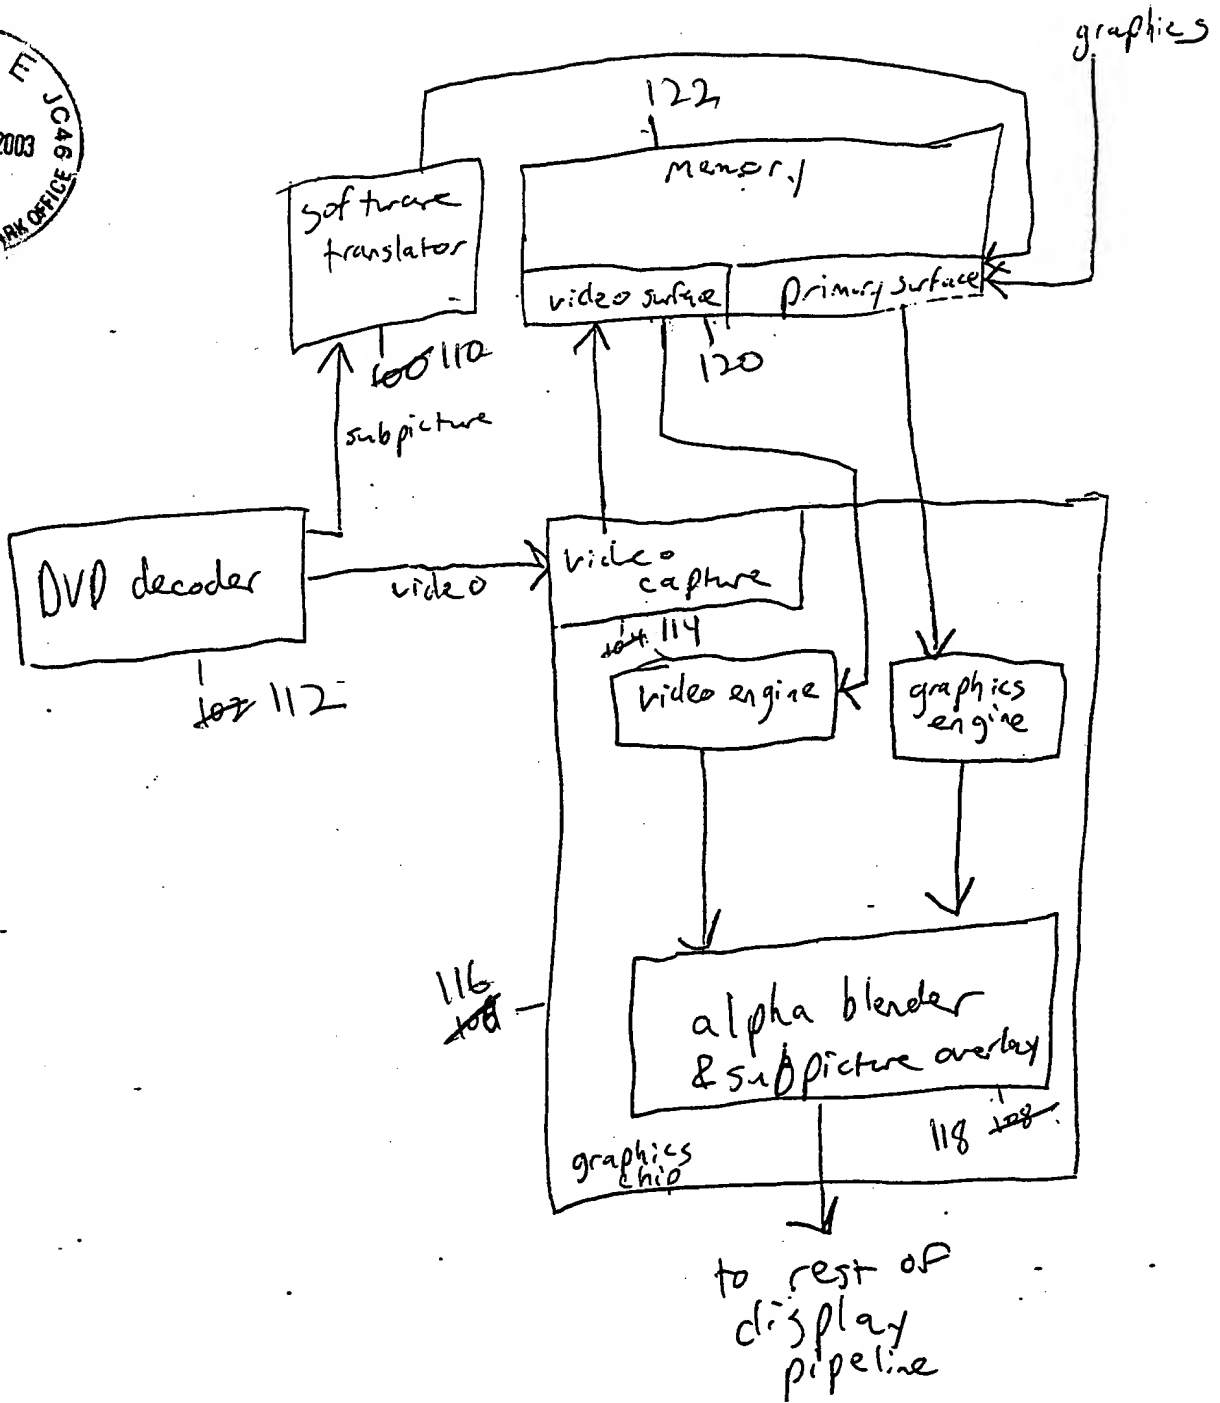 graphics
E JC46
2003
RK OFFICE
122
memory
software
translator
video surface
primary surface
100 110
120
subpicture
DVD decoder
video
video
capture
104 114
102 112
video engine
graphics
engine
116
alpha blender
& subpicture overlay
118 108
graphics
chip
to rest of
display
pipeline